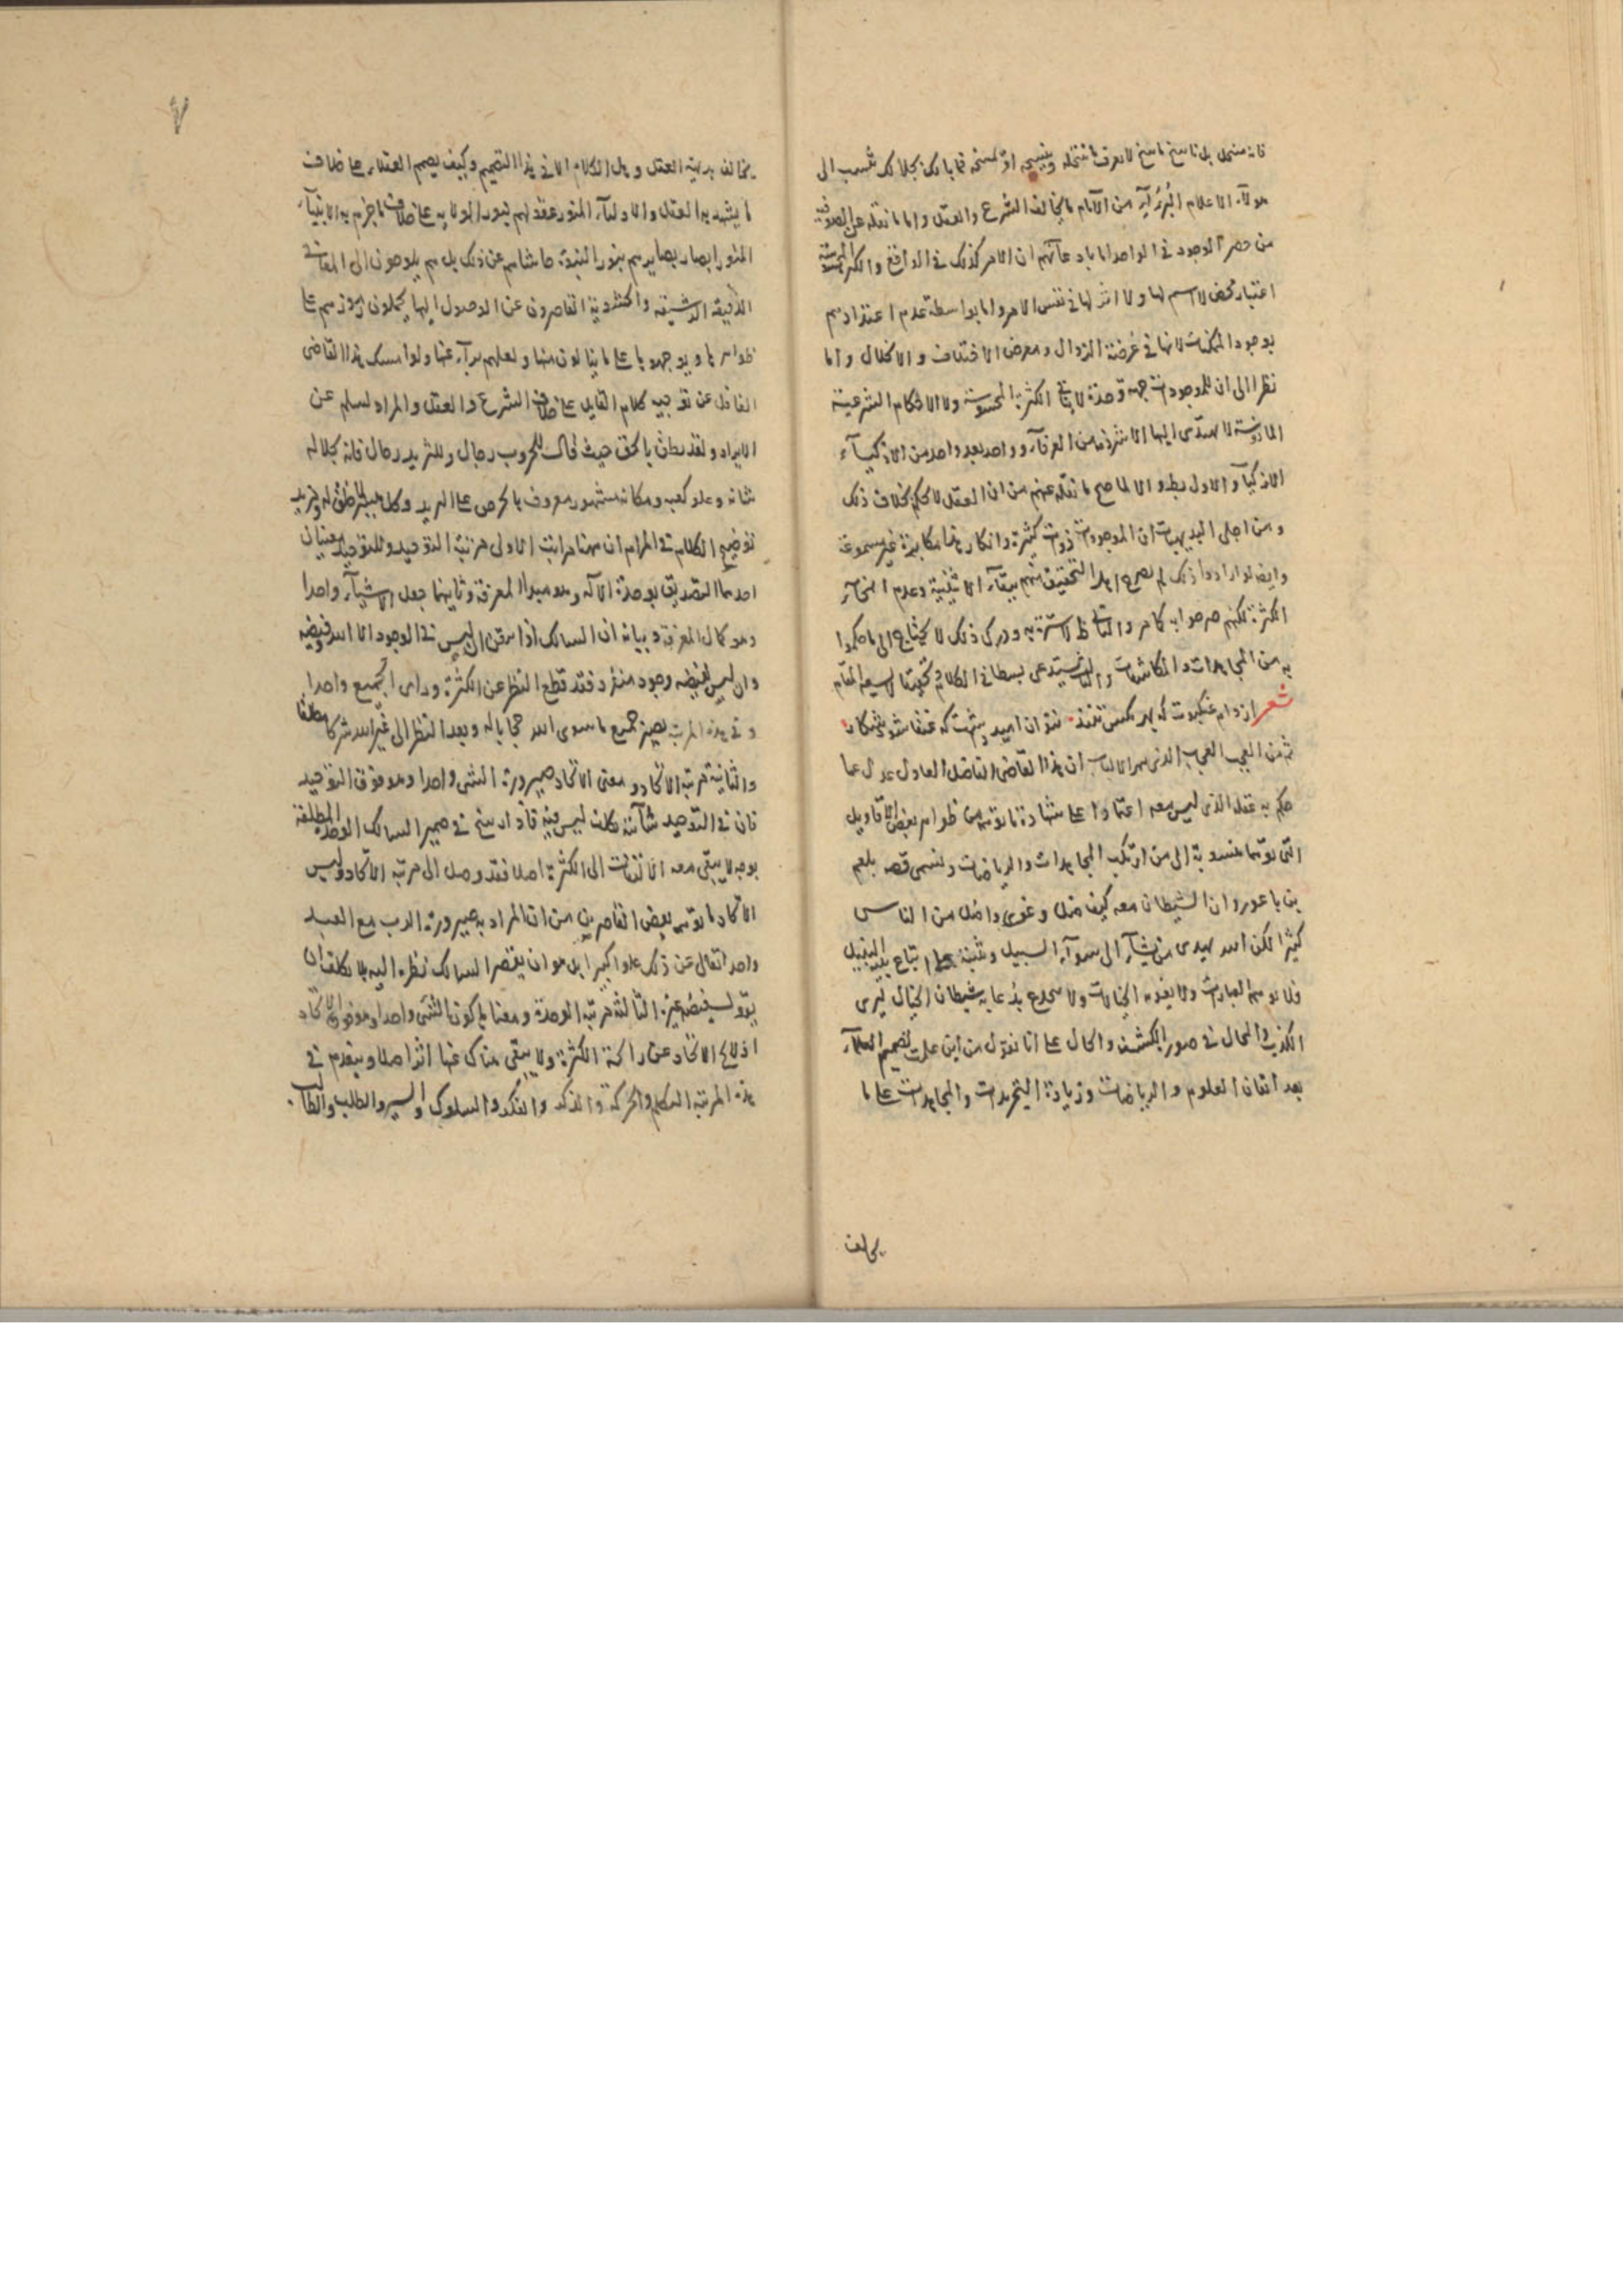 فانه منتحل بل ناسخ ماسخ لا يعرف ما ينتحله وينسخه او يمسخه فما بالك بجلالك تنسب الى
هولآء الاعلام البررآء من الآثام ما يخالف الشرع والعقل واما ما نقله عن الصوفية
من حصر الوجود في الواحد اما بادعآئهم ان الامر كذلك في الواقع والكثرة المحسوسة
اعتبار محض لا اسم لها ولا اثر لها في نفس الامر واما بواسطة عدم اعتدادهم
بوجود الممكنات لانها في عرضة الزوال ومعرض الاختلاف والاختلال واما
نظرا الى ان للموجودات جهة وحدة لا ينافي الكثرة المحسوسة ولا الاحكام الشرعية
لا يهتدى اليها الا شرذمة من العرفآء وواحد بعد واحد من الاذكيآء
الازكيآء والاول بط والا لما صح ما نقله عنهم من ان العقل لا يحكم بخلاف ذلك
ومن اجلى البديهيات ان الموجودات ذوات كثيرة وانكارها مكابرة غير مسموعة
وايضا لو ارادوا ذلك لم يصرح اهل التحقيق منهم ببقآء الاثنينية وعدم انمحآء
الكثرة لكنهم صرحوا به كما مر والثاني ظ لا سترة به ودرك ذلك لا يحتاج الى ما حكموا
به من المجاهدات والمكاشفات والثالث يستدعى بسطا في الكلام وتحقيقا لا يسعه المقام
شعر از دام عنكبوت كه بهر مكس تنند نتوان اميد داشت كه عنقا شود شكار
ثم من العجب العجيب الذى بهر الالباب ان هذا القاضى الفاضل العادل عدل عما
حكم به عقله الذى ليس معه اعتمادا على شهادة ما توهمه من ظواهر بعض الاقاويل
التى توهمها منسوبة الى من ارتكب المجاهدات والرياضات ونسى قصة بلعم
بن باعور وان الشيطان معه كيف ضل وغوى واضل من الناس
كثيرا لكن الله يهدى من يشآء الى سوآء السبيل ويثبته على اتباع
فلا توهمه العبارات ولا يغويه الخيالات ولا ينخدع بدعابة شيطان الخيال ليرى
الكذب والمحال في صور الكشف والحال على انا نقول من اين علمت تصميم العقلآء
بعد اتقان العلوم والرياضات وزيادة التجريدات والمجاهدات على ما
يخالف
يخالف بديهة العقل وهل الكلام الا في هذا التصميم وكيف يصمم العقلاء على خلاف
ما يشهد به العقل والاوليآء المنور عقولهم بنور الولاية على خلاف ما جزم به الانبيآء
المنور ابصار بصايرهم بنور النبوة حاشاهم عن ذلك بل هم يلوحون الى المعانى
الدقيقة الرشيقة والحشوية القاصرون عن الوصول اليها يحملون رموزهم على
ظواهرها ويوجهونها على ما ينالون منها ولعلهم برآء عنها ولو امسك هذا القاضى
الغافل عن توجيه كلام القايل على خلاف الشرع والعقل والمراد لسلم عن
الايراد ولقد نطق بالحق حيث قال للحروب رجال وللثريد رجال فانه بجلالة
شانه وعلو كعبه ومكانه مشهور معروف بالحرص على الثريد وكل ميسر لما خلق له ونزيد
توضيح الكلام في المرام ان ههنا مراتب الاولى مرتبة التوحيد وللتوحيد معنيان
احدهما التصديق بوحدة الآله وهو مبدا المعرفة وثانيهما جعل الاشيآء واحدا
وهو كمال المعرفة وبيانه ان السالك اذا تيقن ان ليس في الوجود الا الله وفيضه
وان ليس لفيضه وجود منفرد فقد قطع النظر عن الكثرة وراى الجميع واحدا
وفي هذه المرتبة يصير جميع ما سوى الله حجابا له ويعد النظر الى غير الله شركا مطلقا
والثانية مرتبة الاتحاد ومعنى الاتحاد صيرورة الشئ واحدا وهو فوق التوحيد
فان في التوحيد شآئبة تكلف ليس فيه فاذا رسخ في ضمير السالك الوحدة المطلقة
بوجه لا يبقى معه التفات الى الكثرة اصلا فقد وصل الى مرتبة الاتحاد وليس
الاتحاد ما توهمه بعض القاصرين من ان المراد به صيرورة الرب مع العبد
واحدا تعالى عن ذلك علوا كبيرا بل هو ان يقصر السالك نظره اليه بلا تكلف ان
يقول لفيضه غيره الثالثة مرتبة الوحدة ومعناها كون الشئ واحدا وهو فوق الاتحاد
اذ يلوح الاتحاد عن رائحة الكثرة ولا يبقى هناك عنها اثر اصلا وينعدم في
هذه المرتبة التكلم والحركة والذكر والفكر والسلوك والسير والطلب والطالب